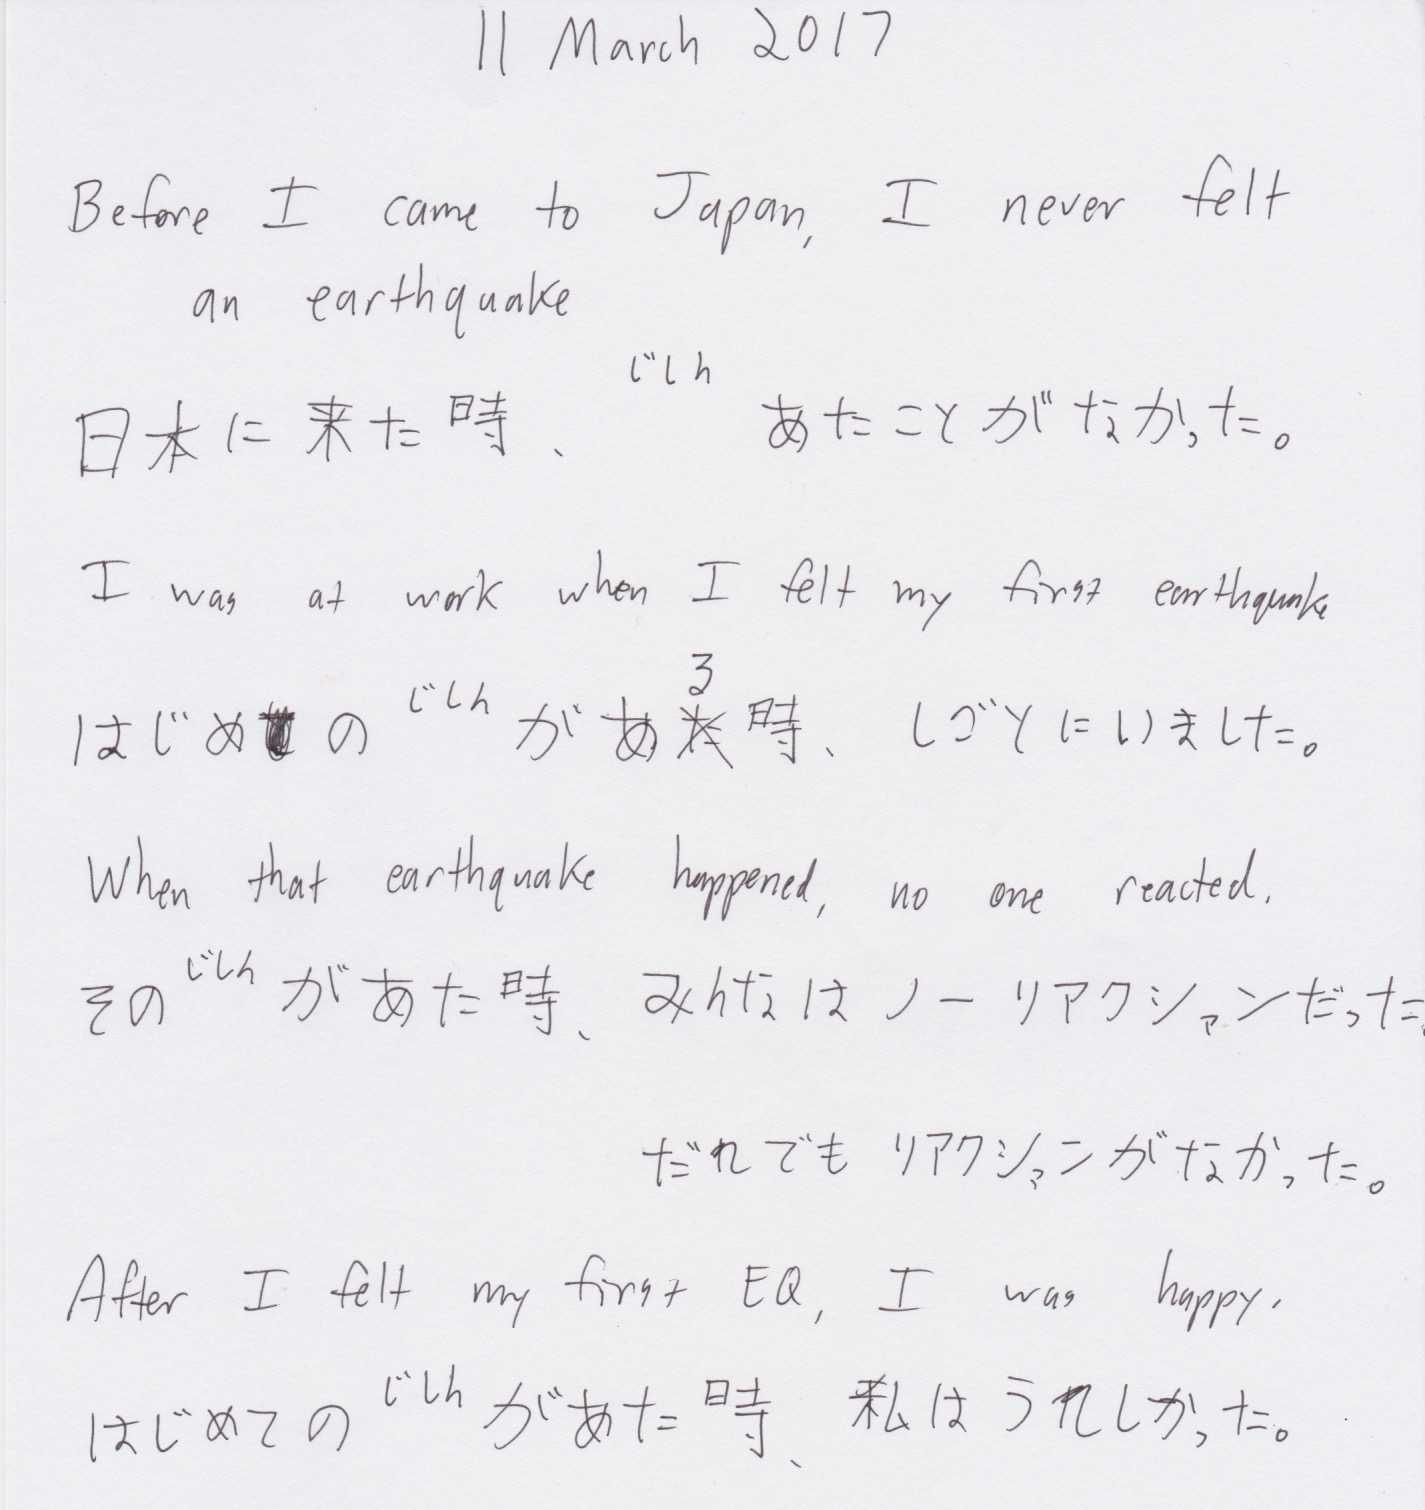 11 March 2017
Before I came to Japan, I never felt
an earthquake
じしん
日本に来た時、 あたことがなかった。
I was at work when I felt my first earthquake
る
はじめのじしんがあ時、しごとにいました。
When that earthquake happened, no one reacted.
そのじしんがあた時、みんなはノーリアクシァンだった。
だれでもリアクシァンがなかった。
After I felt my first EQ, I was happy.
はじめてのじしんがあた時、私はうれしかった。